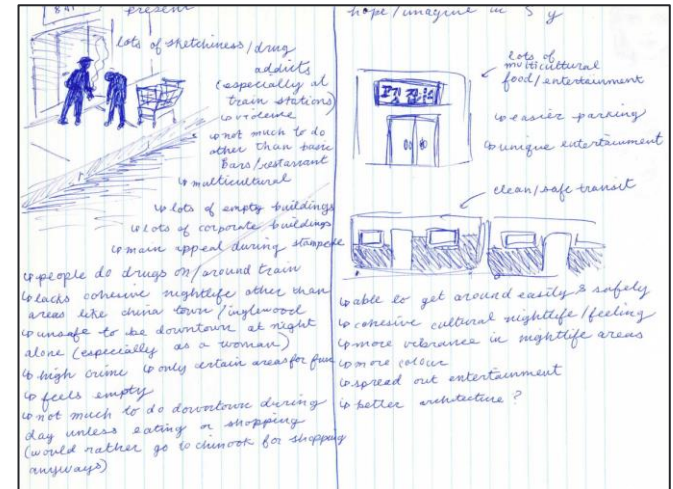 present
lots of sketchiness/drug
addicts
(especially at
train stations)
↳ violence
↳ not much to do
other than basic
Bars/restarrant
↳ multicultural
↳ lots of empty buildings
↳ lots of corporate buildings
↳ main appeal during stampede
↳ people do drugs on/around train
↳ lacks cohesive nightlife other than
areas like china town/inglewood
↳ unsafe to be downtown at night
alone (especially as a woman)
↳ high crime ↳ only certain areas for fun
↳ feels empty
↳ not much to do downtown during
day unless eating or shopping
(would rather go to chinook for shopping
anyways)
hope/imagine in 5 y
lots of
multicultural
food/entertainment
↳ easier parking
↳ unique entertainment
clean/safe transit
↳ able to get around easily & safely
↳ cohesive cultural nightlife/feeling
↳ more vibrance in nightlife areas
↳ more colour
↳ spread out entertainment
↳ better architecture?